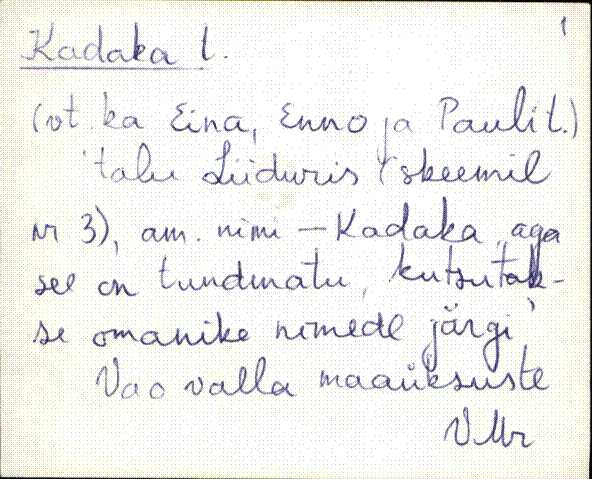 1
Kadaka t.
(vt. ka Eina, Enno ja Pauli t.)
'talu Liiduris (skeemil
nr 3), am. nimi – Kadaka, aga
see on tundmatu, kutsutak-
se omanike nimede järgi'
Vao valla maaüksuste
VMr